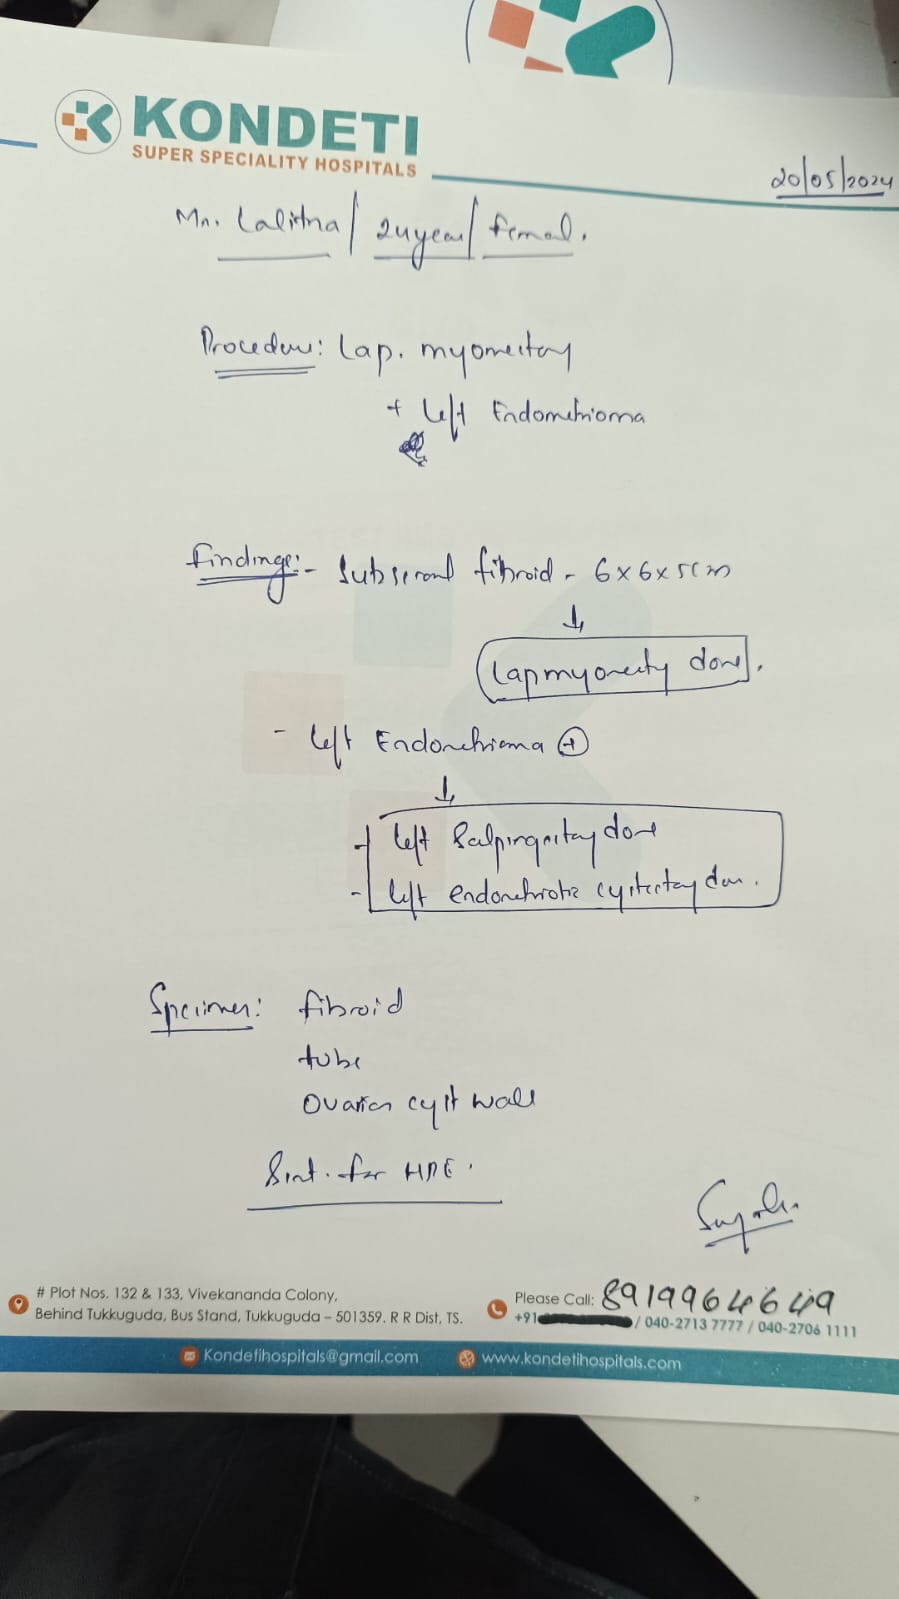 KONDETI
SUPER SPECIALITY HOSPITALS
20/05/2024
Mrs. Lalitha / 24year / Femal.
Procedure: Lap. myomectomy
+ left Endometrioma
Findings:- Subserosal fibroid - 6x6x5cm
↓
Lap myomectomy done.
- left Endometrioma ⊕
↓
- left Salpingectomy done
- left endometriotic cystectomy done.
Specimen: fibroid
tube
Ovarian cyst wall
Sent for HPE.
# Plot Nos. 132 & 133, Vivekananda Colony,
Behind Tukkuguda, Bus Stand, Tukkuguda – 501359. R R Dist, TS.
Please Call: 8919964649
+91 / 040-2713 7777 / 040-2706 1111
Kondetihospitals@gmail.com
www.kondetihospitals.com